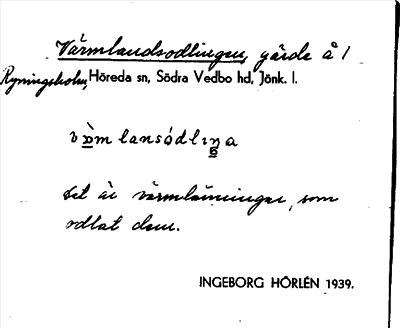 Värmlandsodlingen, gärde å /
Ryningsholm, Höreda sn, Södra Vedbo hd, Jönk. l.
det är värmlänningar, som
odlat dem.
INGEBORG HÖRLÉN 1939.